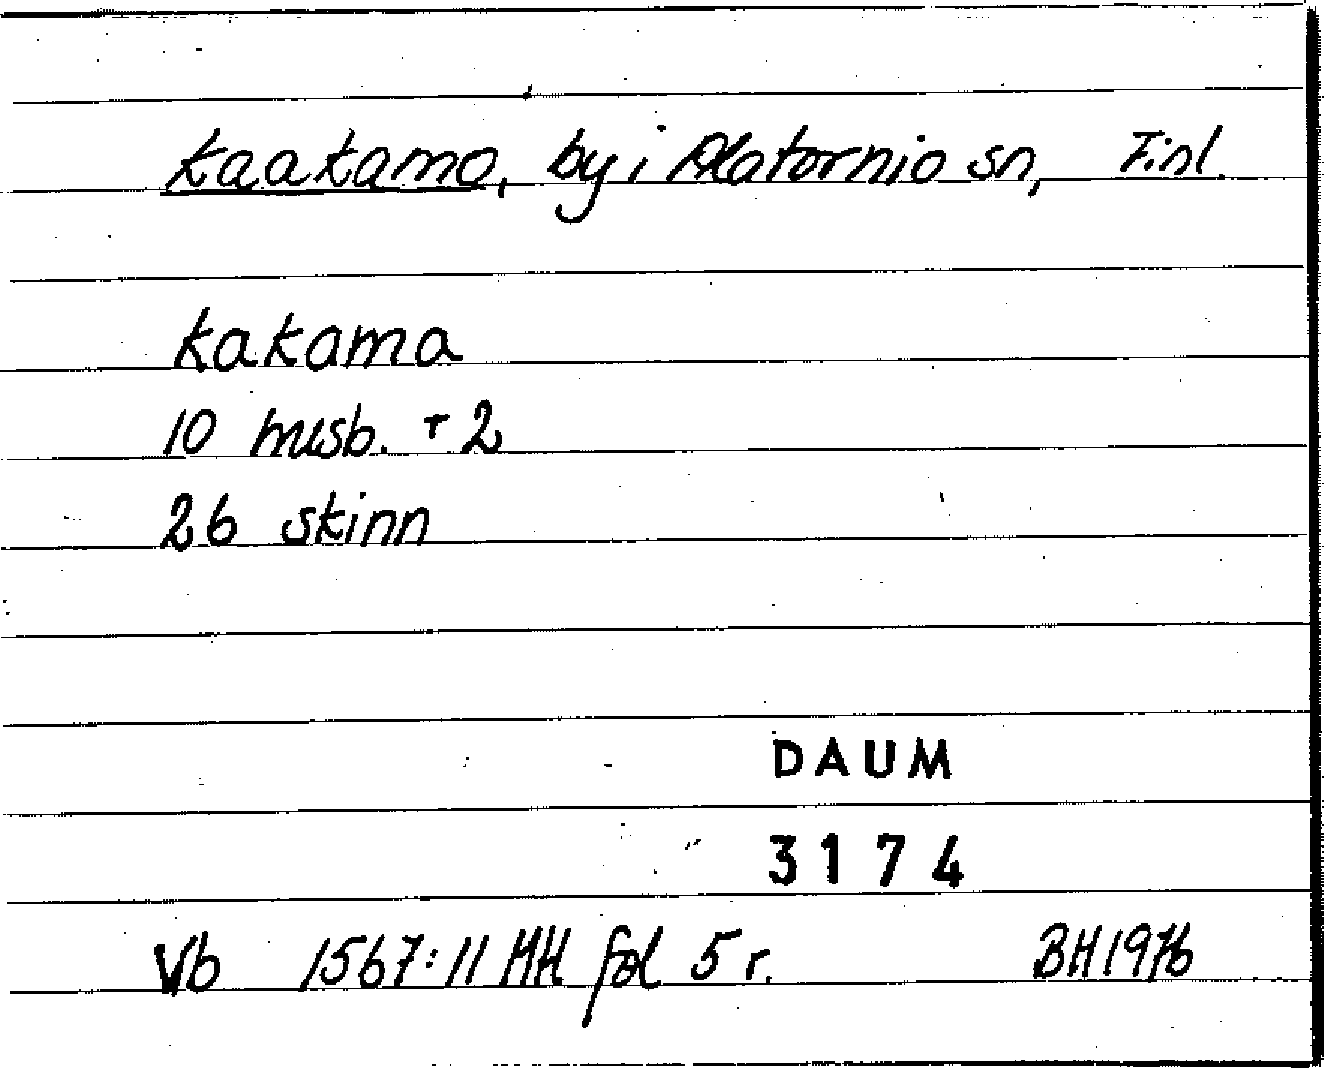 Kaakamo, by i Alatornio sn, Finl.
kakama
10 husb. + 2
26 skinn
DAUM
3174
Vb 1567:11 HH fol 5 r. BH 1976